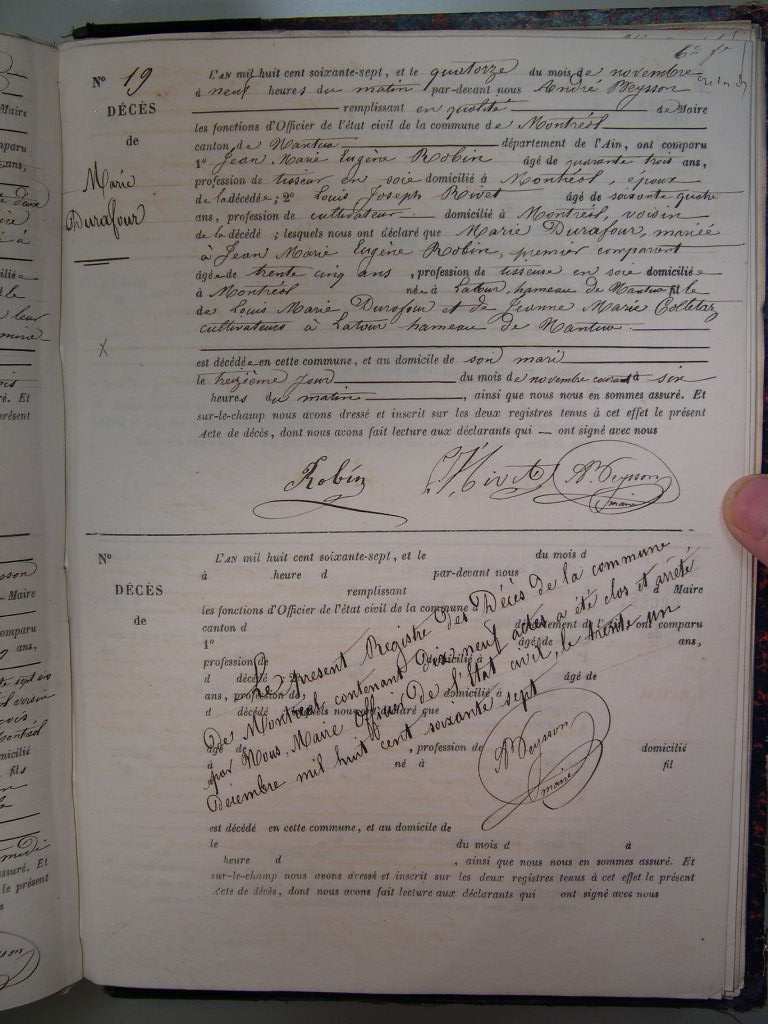 6e
N° 19
DÉCÈS
de
Marie
Durafour
L'AN mil huit cent soixante-sept, et le quatorze du mois de novembre
à neuf heures du matin par-devant nous André Peysson
remplissant en qualité de Maire
les fonctions d'Officier de l'état civil de la commune de Montréal
canton de Nantua département de l'Ain, ont comparu
1° Jean Marie Eugène Robin âgé de quarante trois ans,
profession de tisseur en soie domicilié à Montréal, epoux
de la décédée; 2° Louis Joseph Rivet âgé de soixante quatre
ans, profession de cultivateur domicilié à Montréal, voisin
de la décédé ; lesquels nous ont déclaré que Marie Durafour, mariée
à Jean Marie Eugène Robin, premier comparant
âgée de trente cinq ans, profession de tisseuse en soie domiciliée
à Montréal née à Latour, hameau de Nantua fille
de Louis Marie Durafour et de Jeanne Marie Colletaz
cultivateurs à Latour hameau de Nantua
X
est décédée en cette commune, et au domicile de son mari
le treizième jour du mois de novembre courant à six
heures du matin, ainsi que nous nous en sommes assuré. Et
sur-le-champ nous avons dressé et inscrit sur les deux registres tenus à cet effet le présent
Acte de décès, dont nous avons fait lecture aux déclarants qui ont signé avec nous
Robin Rivet An. Peysson
maire
N°
DÉCÈS
de
L'AN mil huit cent soixante-sept, et le du mois d
à heure d par-devant nous
remplissant d Maire
les fonctions d'Officier de l'état civil de la commune d
canton d département de l'Ain, ont comparu
1° âgé de ans,
profession de domicilié à
d décédé 2° âgé de
ans, profession de domicilié à
d décédé lesquels nous ont déclaré que
âgé de , profession de domicilié
à né à fil
Le présent Registre des Décès de la commune
De Montréal, contenant Dix neuf actes a été clos et arrêté
par Nous, Maire Officier De l'Etat civil, le trente un
Décembre mil huit cent soixante sept
An. Peysson
maire
est décédé en cette commune, et au domicile de
le du mois d à
heure d , ainsi que nous nous en sommes assuré. Et
sur-le-champ nous avons dressé et inscrit sur les deux registres tenus à cet effet le présent
Acte de décès, dont nous avons fait lecture aux déclarants qui ont signé avec nous